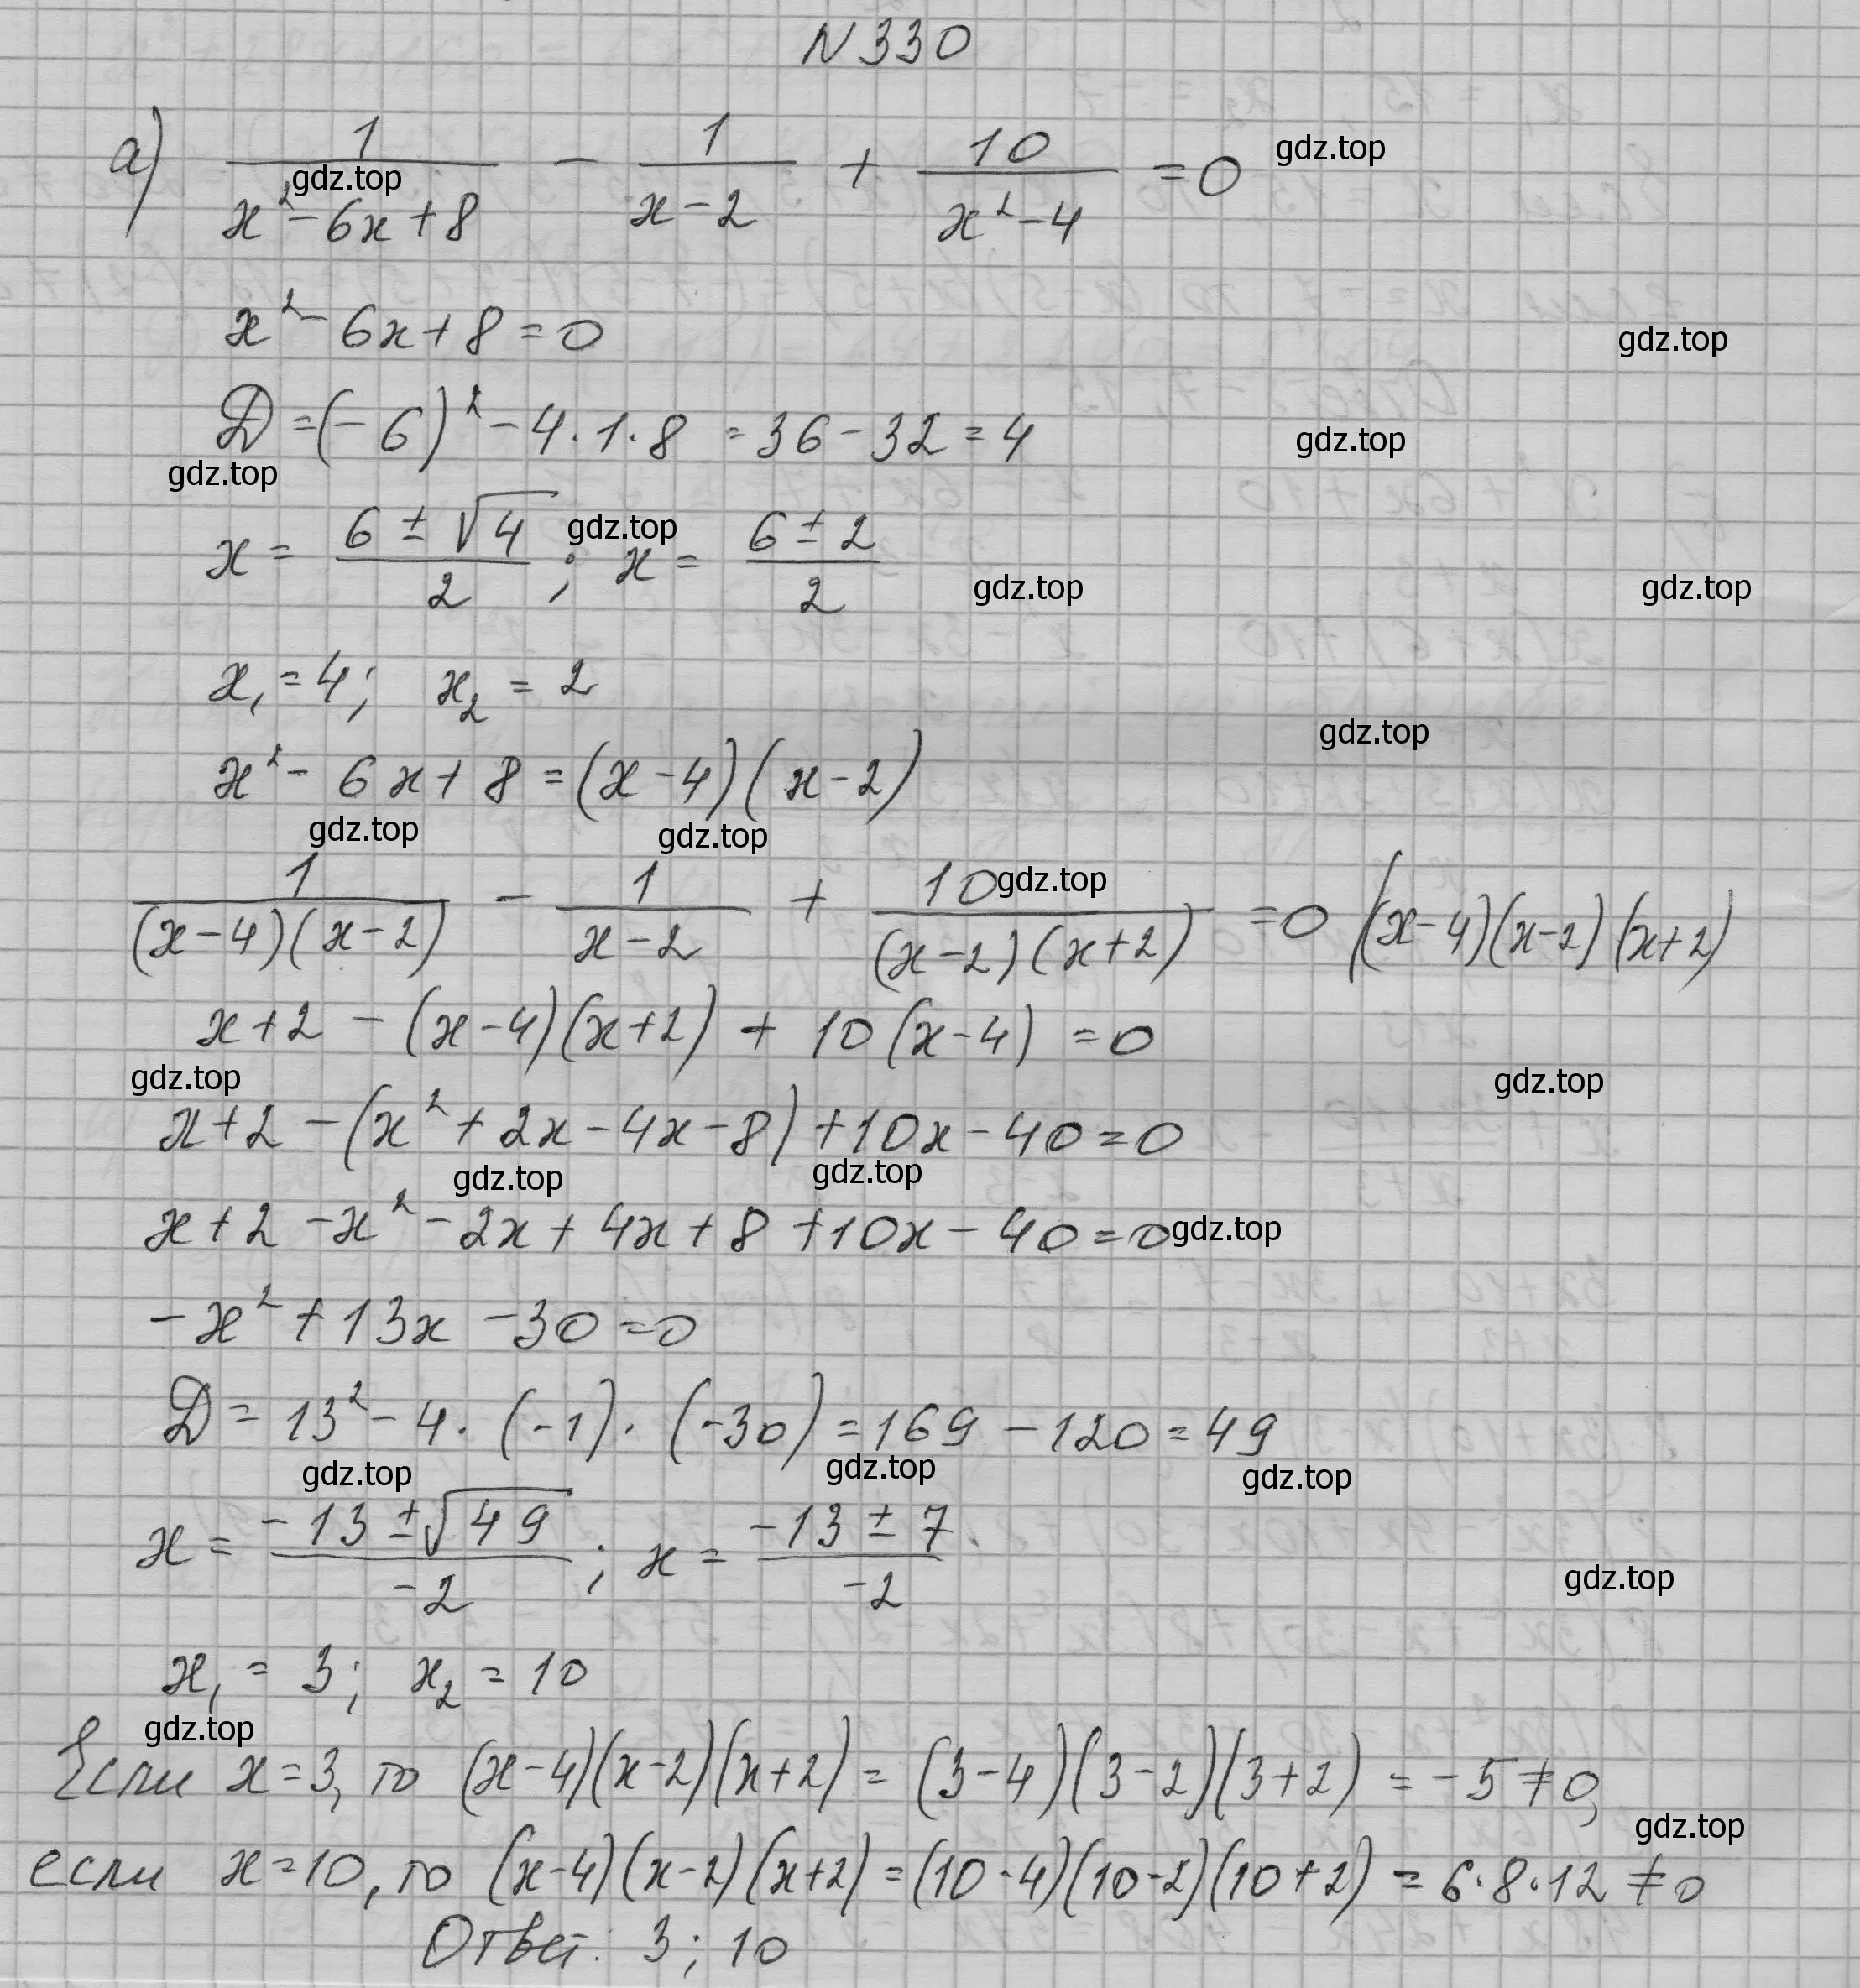 N 330
а) 1/(x²-6x+8) - 1/(x-2) + 10/(x²-4) = 0 gdz.top
gdz.top
x² - 6x + 8 = 0 gdz.top
D = (-6)² - 4·1·8 = 36 - 32 = 4 gdz.top
gdz.top
x = (6 ± √4)/2 ; x = (6 ± 2)/2 gdz.top
gdz.top gdz.top
x₁ = 4; x₂ = 2
gdz.top
x² - 6x + 8 = (x-4)(x-2)
gdz.top gdz.top
1/((x-4)(x-2)) - 1/(x-2) + 10/((x-2)(x+2)) = 0 /(x-4)(x-2)(x+2) gdz.top
x+2 - (x-4)(x+2) + 10(x-4) = 0
gdz.top gdz.top
x+2 - (x² + 2x - 4x - 8) + 10x - 40 = 0
gdz.top gdz.top
x + 2 - x² - 2x + 4x + 8 + 10x - 40 = 0 gdz.top
-x² + 13x - 30 = 0
D = 13² - 4·(-1)·(-30) = 169 - 120 = 49
gdz.top gdz.top gdz.top
x = (-13 ± √49)/-2 ; x = (-13 ± 7)/-2
gdz.top
x₁ = 3; x₂ = 10
gdz.top
Если x = 3, то (x-4)(x-2)(x+2) = (3-4)(3-2)(3+2) = -5 ≠ 0,
gdz.top
если x = 10, то (x-4)(x-2)(x+2) = (10-4)(10-2)(10+2) = 6·8·12 ≠ 0
Ответ: 3; 10